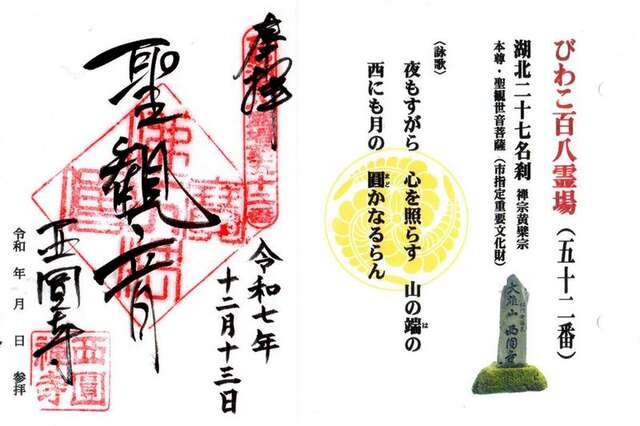 びわこ百八霊場（五十二番）
湖北二十七名刹 禅宗黄檗宗
本尊・聖観世音菩薩（市指定重要文化財）
〈詠歌〉
夜もすがら 心を照らす 山の端の
は
西にも月の 圓かなるらん
まど
大雄山 西圓寺
奉拝
聖観音
西圓寺
令和七年
十二月十三日
令和 年 月 日 参拝
佛法僧寶
西圓禅寺